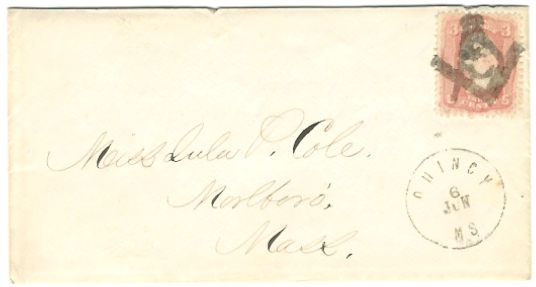 3 3
CENTS
Miss Lula P. Cole.
Marlboro,
Mass.
QUINCY
6
JUN
MS